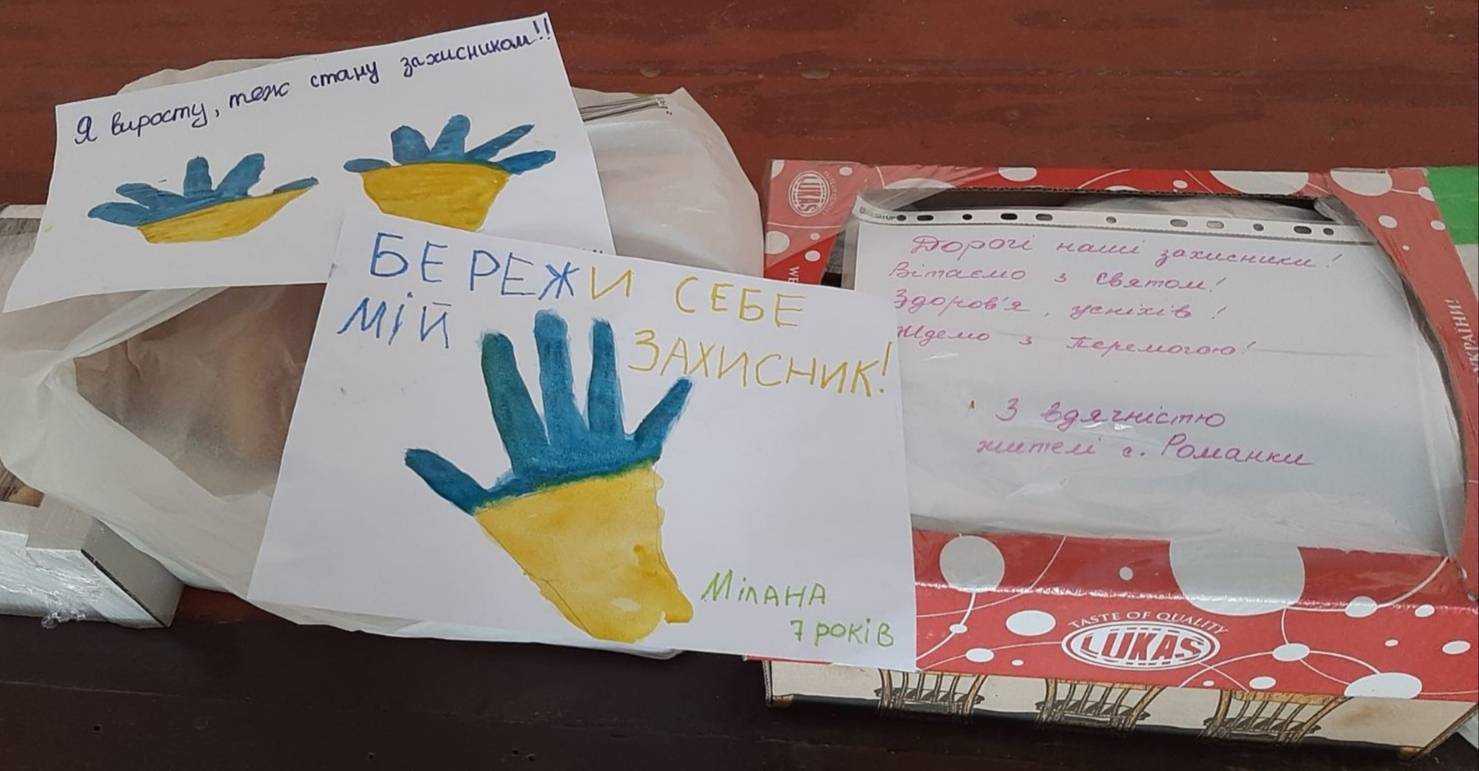 Я виросту, теж стану захисником!!
БЕРЕЖИ СЕБЕ
МІЙ ЗАХИСНИК!
Мілана
7 років
LUKAS
Дорогі наші захисники!
Вітаємо з святом!
Здоров'я, успіхів!
Ждемо з Перемогою!
З вдячністю
жителі с. Романки
УКРАЇНИ!
TASTE OF QUALITY
LUKAS